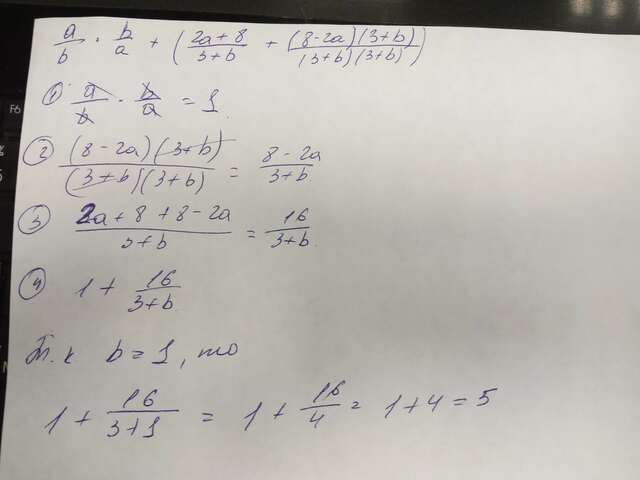 a/b · b/a + ( (2a+8)/(3+b) + ((8-2a)(3+b))/((3+b)(3+b)) )
① a/b · b/a = 1
② ((8-2a)(3+b))/((3+b)(3+b)) = (8-2a)/(3+b)
③ (2a+8+8-2a)/(3+b) = 16/(3+b)
④ 1 + 16/(3+b)
Т.к b=1, то
1 + 16/(3+1) = 1 + 16/4 = 1+4=5
F6